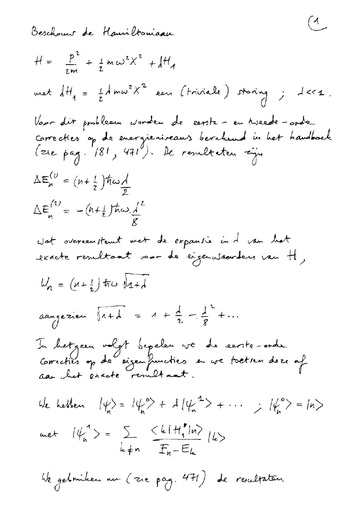 (1
Beschouw de Hamiltoniaan
H = p²/2m + ½ mω²X² + λH₁
met λH₁ = ½ λ mω²X² een (triviale) storing ; λ<<1.
Voor dit probleem worden de eerste- en tweede-orde
correcties op de energieniveaus berekend in het handboek
(zie pag. 181, 471). De resultaten zijn
ΔEₙ⁽¹⁾ = (n+½)ħω λ/2
ΔEₙ⁽²⁾ = -(n+½)ħω λ²/8
wat overeenstemt met de expansie in λ van het
exacte resultaat voor de eigenwaarden van H,
Wₙ = (n+½)ħω √1+λ
aangezien √1+λ = 1 + λ/2 - λ²/8 + ...
In hetgeen volgt bepalen we de eerste-orde
correcties op de eigenfuncties en we toetsen deze af
aan het exacte resultaat.
We hebben |ψₙ> = |ψₙ⁰> + λ|ψₙ¹> + ... ; |ψₙ⁰> = |n>
met |ψₙ¹> = Σ k≠n <k|H₁|n> / Eₙ-Eₖ |k>
We gebruiken nu (zie pag. 471) de resultaten